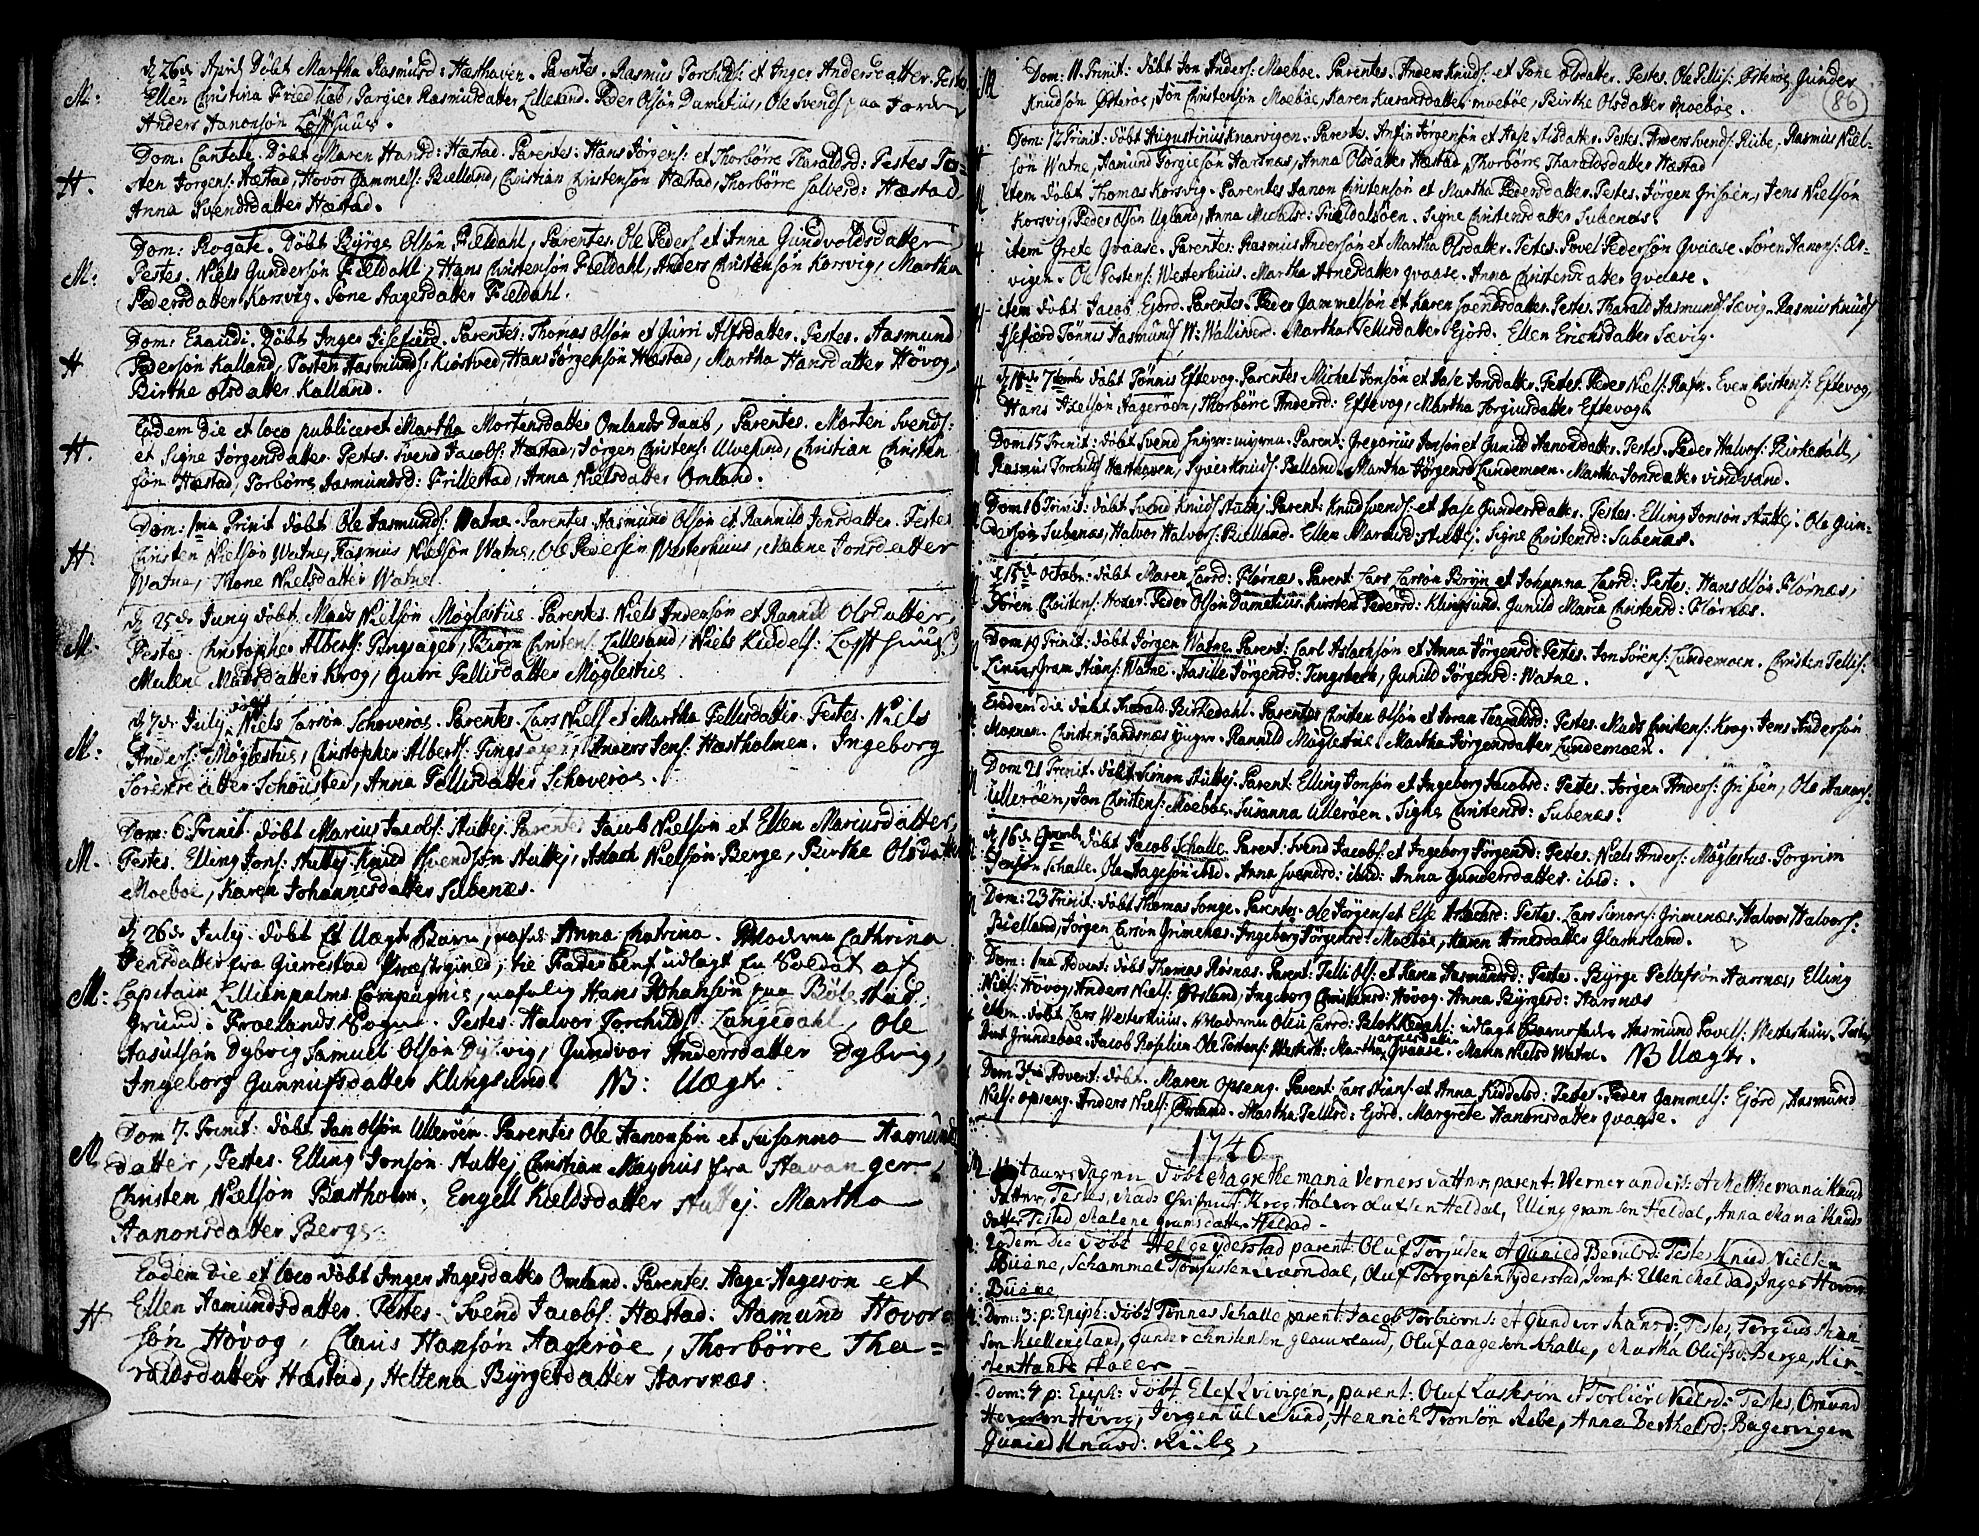 M: d 26de April Døbt Martha Rasmusd: Hæsthaven. Parentes. Rasmus Torchils: et Inger Andersdatter. Testes
Ellen Christina Friedlieb, Targier Rasmusdatter Lillesand. Peder Olsøn Dametius, Ole Svends: paa
Anders Aanonsøn Løffthuus.
H. Dom: Cantate. Døbt Maren Hansd: Hæstad. Parentes: Hans Jørgens: et Thorbørre Tharaldsd: Testes To-
sten Jørgens: Hæstad, Hovor Gammels: Bielland, Christian Christensøn Hæstad, Thorbørre Salvesd: Hæstad,
Anna Svendsdatter Hæstad.
M: Dom: Rogate. Døbt Byrge Olsøn Fieldahl, Parentes. Ole Peders: et Anna Gundvoldsdatter,
Testes. Niels Gundersøn Fieldahl, Hans Christensøn Fieldahl, Anders Christensøn Korsvig, Martha
Pedersdatter Korsvig. Tone Aagesdatter Fieldahl.
H Dom: Exaudi. Døbt Inger Isefierd. Parentes. Thomas Olsøn et Gurri Alfsdatter. Testes. Aasmund
Pedersøn Kalland, Tosten Aasmunds: Kiøstved, Hans Jørgensøn Hæstad, Martha Hansdatter Høvog,
Birthe Olsdatter Kalland.
H. Eadem die et loco publiceret Martha Mortensdatter Omlands Daab, Parentes. Morten Svends:
et Signe Jørgensdatter. Testes. Svend Jacobs: Hæstad, Jørgen Christens: Ulvesund, Christian Christen
søn Hæstad, Torbørre Aasmundsd: Trillestad, Anna Nielsdatter Omland.
H. Dom: 1ma Trinit døbt Ole Aasmunds: Watne. Parentes Aasmund Olsøn et Rannild Jonsdatter. Testes
Christen Nielsøn Watne, Rasmus Nielsøn Watne, Ole Pedersøn Westerhuus, Malene Jonsdatter
Watne, Thone Nielsdatter Watne.
M. d 25de Juny døbt Mads Nielsøn Møglestue. Parentes. Niels Andersøn et Rannild Olsdatter,
Testes. Christopher Alberts: Tingsager, Biørn Christens: Lillesand, Niels Kiddels: Loffthuus,
Malene Madsdatter Krog, Gurri Tellisdatter Møglestue.
M: d 7de July døbt Niels Larsøn Schoverøe. Parentes. Lars Niels: et Martha Tellisdatter. Testes. Niels
Anders: Møglestue, Christopher Alberts: Tingsager, Anders Jens: Hæstholmen. Ingeborg
Sørensdatter Schoustad, Anna Tellisdatter Schoverøe.
M. Dom: 6. Trinit: døbt Marius Jacobs: Stuttej. Parentes Jacob Nielsøn et Ellen Mariusdatter,
Testes. Elling Jons: Stuttej Knud Svendsøn Stuttej, Aslach Nielsøn Berge, Birthe Olsdatter
Moeboe, Karen Johannesdatter Subenæs.
M: d 26de July. døbt Et Uægte Barn, nafnl. Anna Chatrina. Moderen Cathrina
Jensdatter fra Gierrestad Præstegield, til Fader bent udlagt En Soldat af
Capitain Lillienpalms Compagnie, nafnlig Hans Johansøn paa Bøle
Grund i Froelands Sogn. Testes. Halvor Torchilds: Langedahl, Ole
Aasulsøn Dybvig Samuel Olsøn Dybvig, Gundvor Andersdatter Dybvig,
Ingeborg Gunnufsdatter Klingsund. NB: Uægte.
M. Dom 7. Trinit: døbt Jan Olsøn Ullerøen. Parentes Ole Aanonsøn et Susanna Aasmunds
datter, Testes. Elling Jonsøn Stuttej, Christian Magnus fra Stavanger,
Christen Nielsøn Bæstholm. Engell Kieldsdatter Stuttej. Martha
Aanonsdatter Berge.
H Eadem die et loco døbt Inger Aagesdatter Omland. Parentes. Aage Aagesøn et
Ellen Aamundsdatter. Testes. Svend Jacobs: Hæstad. Aamund Hovor-
søn Høvog, Claus Hansøn Aagerøe, Thorbørre Tha-
raldsdatter Hæstad, Heltena Byrgesdatter Aarsnæs.
86
M Dom: 11. Trinit: døbt Jon Anders: Moeboe. Parentes. Anders Knuds: et Tone Olsdatter. Testes. Ole Tellis: Østerøe, Gunder
Knudsøn Østerøe, Jon Christensøn Moeboe, Karen Knudsdatter Moeboe, Birthe Olsdatter Moeboe.
Dom: 12 Trinit: døbt Augustinus Knarvigen. Parentes. Anfin Jørgensøn et Aase Nilsdatter. Testes. Anders Svends: Riibe, Rasmus Niel-
søn Watne, Aamund Torgiesøn Aarsnæs, Anna Olsdatter Hæstad, Thorbørre Tharaldsdatter Hæstad
Item døbt Thomas Korsvig. Parentes Aanon Christensøn et Martha Pedersdatter. Testes. Jørgen Grisøen, Jens Nielsøn
Korsvig, Peder Olsøn Ugland, Anna Michelsd: Fieldalsøen. Signe Christensdatter Subenæs.
item Grete Qvaase. Parentes. Rasmus Andersøn et Martha Olsdatter. Testes. Povel Pedersøn Qvaase. Søren Aanons: Os-
vigen. Ole Tostens: Westerhuus. Martha Arnesdatter Qvaase. Anna Christensdatter Qvaase.
item døbt Jacob Ejord. Parentes. Peder Gammelsøn et Karen Svendsdatter. Testes. Tharald Aasmunds: Sævig. Rasmus Knuds:
Isefierd Tønnis Aasmunds: Walliverd. Martha Tellisdatter Ejord. Ellen Erichsdatter Sævig.
d 18de 7tembr døbt Tønnis Eftevog. Parentes Michel Jonsøn et Aase Jonsdatter. Testes. Peder Niels: Even Christens: Eftevog,
Hans Axelsøn Aagerøen, Thorbørre Andersd: Eftevog, Martha Torgiusdatter Eftevog.
Dom 15 Trinit: døbt Svend Parent: Gregorius Jonsøn et Gunild Aanonsdatter. Testes. Peder Halvors: Birkedall,
Rasmus Torchilds: Hæsthaven, Syver Knuds: Bielland. Martha Jørgensd: Lundemoen. Martha Jonsdatter Vindvand.
Dom 16 Trinit: døbt Svend Knuds: Stuttej: Parent: Knud Svends: et Aase Gundersdatter. Testes. Elling Jonsøn Stuttej. Ole Gun-
dersøn Subenæs, Halvor Halvors: Bielland. Ellen Mariusd: Stuttej. Signe Christensd: Subenæs.
d 15de Octobr: døbt Maren Larsd: Flørnæs. Parent: Lars Larsøn Bryn et Johanna Larsd: Testes: Hans Olsøn Flørnæs,
Søren Christens: Hoxer. Peder Olsøn Dametius. Kirsten Pedersd: Klingsund. Gunild Maria Christensd: Flørnæs.
Dom 19 Trinit: døbt Jørgen Watne. Parent: Carl Aslachsøn et Anna Jørgensd: Testes. Jon Sørens: Lundemoen. Christen Tellis:
Gram Stians: Watne. Aasille Jørgensd: Tingsbech, Gunild Jørgensd: Watne.
Eadem die døbt Tharald Birkedahl. Parentes Christen Olsøn et Joran Tharaldsd: Testes. Mads Christens: Krog. Jens Andersøn
Moenæs. Christen Sandsnæs Rannild Møglestue. Martha Jørgensdatter Lundemoen.
Dom 21 Trinit. døbt Simon Stuttej. Parent: Elling Jonsøn et Ingeborg Jacobsd: Testes. Jørgen Anders: Grisøen, Ole Aanons:
Ullerøen, Jon Christens: Moeboe. Susanna Ullerøen. Signe Christensd: Subenæs.
d 16de 9vembr døbt Jacob Schalle. Parent: Svend Jacobs: et Ingeborg Jørgensd: Testes. Niels Anders: Møglestue. Torgrim
Jensøn Schalle. Ole Aagesøn ibid. Anna Svendsd: ibid: Anna Gundersdatter ibid:.
Dom: 23 Trinit: døbt Thomas Songe. Parentes. Ole Jørgens: et Else Aslachsd: Testes. Lars Simons: Grimenæs, Halvor Halvors:
Bielland, Jørgen Larsøn Grimenæs. Ingeborg Jørgensd: Moeboe, Karen Arnesdatter Glamsland.
Dom: 1ma Advent: døbt Thomas Rosnæs. Parent: Telli Ols: et Karen Aasmunsd: Testes. Byrge Pellefsøn Aarsnæs, Elling
Niels: Høvog, Anders Niels: Øresland, Ingeborg Christensd: Høvog. Anna Byrgesd: Aarsnæs
item. døbt Lars Westerhuus. Moderen Oleu Larsd: udlagt Barnefader Aasmund Povels: Westerhuus. Testes
Grundeboe. Jacob Roselien. Ole Tostens: Westerh: Martha Arnesdatter Qvaase. Maren Nielsd Watne. NB Uægte.
Dom 3tia Advent. døbt. Maren Opseng. Parent: Lars Stians: et Anna Kiddelsd: Testes. Peder Gammels: Ejord, Aasmund
Niels: Opseng. Anders Niels: Øresland. Martha Tellisd: Ejord. Margrete Aanonsdatter Qvaase.
1746
M Nytaars Dagen døbt Magrethe Maria Verners datter, parent: Werner Anders: et Mette Maria Knud
datter, Testes, Mads Christens: Krog Halvor Olufsen Heldal, Elling Gramsen Heldal, Anna Maria Knuds
datter Tested Malene Gramsdatter Heldad.
Eodem die døbt Helge Ytderstad parent: Oluf Torjusen et Gunild Berulsd: Testes Knud Nielsen
Buane, Schammel Torjussen Værendal, Oluf Torgrissen Yderstad, Jomf: Ellen Mel dad, Inger Hovors
Buane
Dom: 3: p: Epiph: døbt Tønnes Schalle parent: Jacob Torbiørns: et Gundvor Hansd: Testes, Torgius Stian-
sen Kiellengland, Gunder Christensen Glamsland, Oluf Aagesen Schalle, Martha Olufsd: Berge, Kir-
sten Hansd Skaler
Dom: 4 p: Epiph: døbt Elef Qvivigen, parent: Oluf Laskesøn et Torbiør Nielsd: Testes, Omund
Hovorsen Høvog, Jørgen Ulvesund, Henrich Tronsøn Ribe, Anna Berthelsd: Bagervigen
Gunild Knudsd: Riibe,